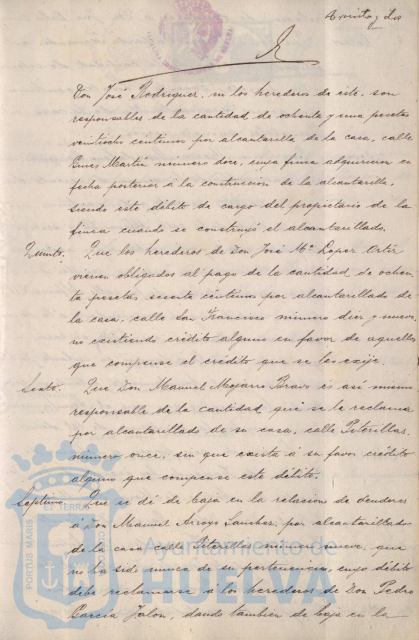 Treinta y dos
Don José Rodriguez, ni los herederos de este, son
responsables de la cantidad, de ochenta y una pesetas
veintidos céntimos por alcantarilla de la casa, calle
Gines Martin número doce, cuya finca adquirieron en
fecha posterior á la construccion de la alcantarilla,
siendo este débito de cargo del propietario de la
finca cuando se construyó el alcantarillado.
Quinto. Que los herederos de Don José Mª Lopez Ortiz
vienen obligados al pago de la cantidad de ochen-
ta pesetas sesenta céntimos por alcantarillado de
la casa, calle San Francisco número diez y nueve,
no existiendo crédito alguno en favor de aquellos
que compense el crédito que se les exije.
Sexto. Que Don Manuel Mojarro Bravo es así mismo
responsable de la cantidad que se le reclama
por alcantarillado de su casa, calle Puterillas,
número once, sin que exista á su favor crédito
alguno que compense este débito.
Septimo. Que se dé de baja en la relacion de deudores
á Don Manuel Arroyo Sanchez, por alcantarillado
de la casa calle Puterillas número nueve, que
no ha sido nunca de su pertenencia, cuyo débito
debe reclamarse á los herederos de Don Pedro
Garcia Jalon, dando tambien de baja en la
PORTUS MARIS ET TERRAE
Ayuntamiento de
HUELVA